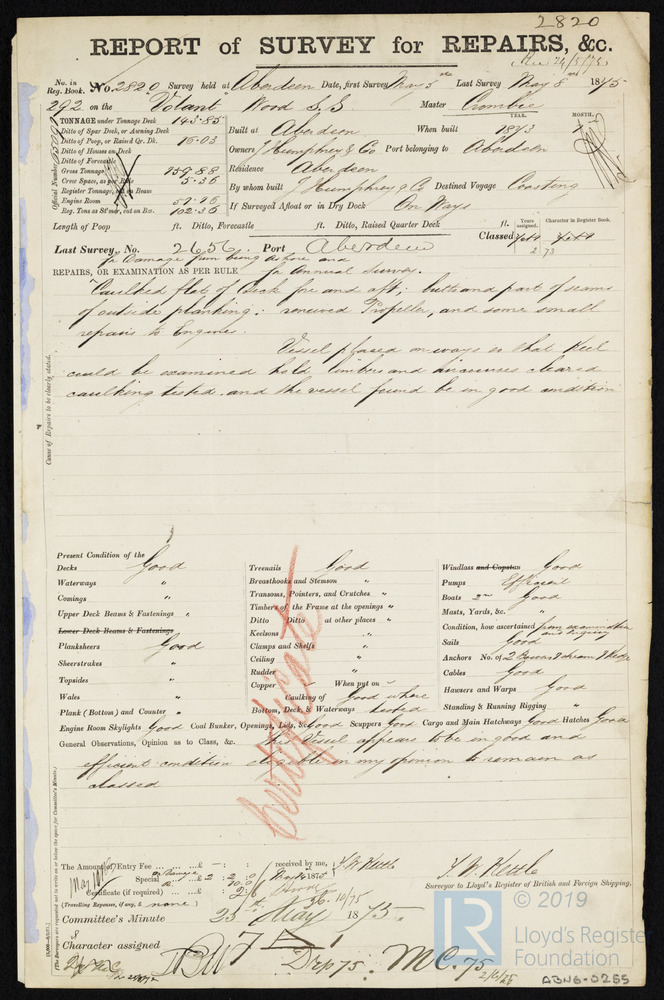 2820
REPORT of SURVEY for REPAIRS, &c.
No. in Reg. Book. No. 2820 Survey held at Aberdeen Date, first Survey May 5th Last Survey May 8th 1875
292 on the "Volant" Wood S.S. Master Crombie
TONNAGE under Tonnage Deck 143.85
Ditto of Spar Deck, or Awning Deck
Ditto of Poop, or Raised Qr. Dk. 16.03
Ditto of Houses on Deck
Ditto of Forecastle
Gross Tonnage 159.88
Crew Space, as per Rule 5.36
Register Tonnage, cut on Beam
Engine Room
Reg. Tons as St'mer, cut on Bm. 102.36
Official Number
YEAR. MONTH.
Built at Aberdeen When built 1873
Owners J Humphrey & Co Port belonging to Aberdeen
Residence Aberdeen
By whom built J Humphrey & Co Destined Voyage Coasting
If Surveyed Afloat or in Dry Dock On Ways
Length of Poop ft. Ditto, Forecastle ft. Ditto, Raised Quarter Deck ft.
Years assigned. Character in Register Book.
Classed
2.73
Last Survey, No. 2656 Port Aberdeen
for Damage from being ashore and
REPAIRS, OR EXAMINATION AS PER RULE for Annual Survey.
Caulked flat of Deck fore and aft: butts and part of seams
of outside planking: renewed Propeller, and some small
repairs to Engines.
Vessel placed on ways so that Keel
could be examined hold, limbers and aircourses cleared
caulking tested and the vessel found be in good condition
Cause of Repairs to be clearly stated.
Present Condition of the
Decks Good
Waterways "
Comings "
Upper Deck Beams & Fastenings "
Lower Deck Beams & Fastenings
Planksheers Good
Sheerstrakes "
Topsides "
Wales "
Plank (Bottom) and Counter "
Treenails Good
Breasthooks and Stemson "
Transoms, Pointers, and Crutches "
Timbers of the Frame at the openings "
Ditto Ditto at other places "
Keelsons "
Clamps and Shelfs "
Ceiling "
Rudder "
Copper When put on
Caulking of Good where
Bottom, Deck, & Waterways tested
Windlass and Capstan Good
Pumps Efficient
Boats 2 Good
Masts, Yards, &c. "
Condition, how ascertained from examination and inquiry
Sails Good
Anchors No. of 2 Bowers 1 Stream 1 Kedge
Cables Good
Hawsers and Warps Good
Standing & Running Rigging "
Engine Room Skylights Good Coal Bunker, Openings, Lids, &c. Good Scuppers Good Cargo and Main Hatchways Good Hatches Good
General Observations, Opinion as to Class, &c. This Vessel appears to be in good and
efficient condition eligible in my opinion to remain as
classed
Certificate
The Amount of Entry Fee £ - : : received by me, J. W. Kettle
Special £ 2 : 2 : 0
Certificate (if required) 2/6
(Travelling Expenses, if any, £ none)
J. W. Kettle
Surveyor to Lloyd's Register of British and Foreign Shipping.
Committee's Minute 25th May 1875.
Character assigned
Drp 75. MC. 75
LR
© 2019
Lloyd's Register
Foundation
ABN6-0255